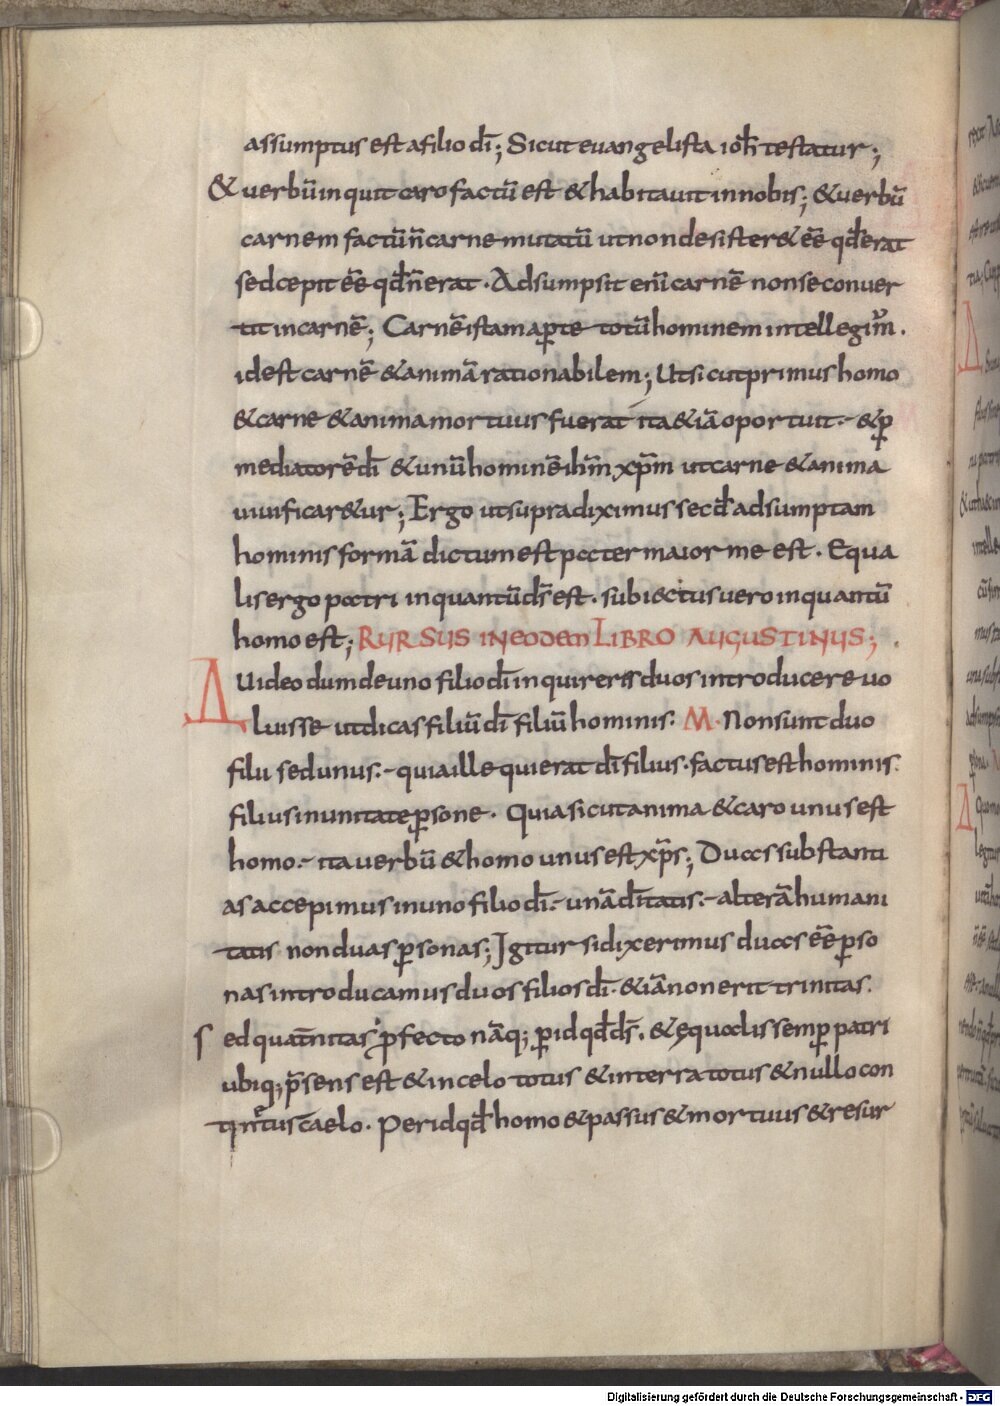 assumptus est afilio dī; Sicut euangelista ioħ testatur;
& uerbū inquit caro factū est & habitauit innobis; & uerbū
carnem factū ñ carne mutatū ut non desister& eē qđ erat
sed cepit eē qđ ñ erat. Adsumpsit enī carnē non se conuer
tit in carnē; Carnē istam aperte totū hominem intellegim.
id est carnē & animā rationabilem; Ut sicut primus homo
& carne & anima mortuus fuerat ita & iā oportuit. & ꝑ
mediatorē dī & unū hominē ihm̄ xp̄m ut carne & anima
uiuificar&ur; Ergo ut supra diximus secđ adsumptam
hominis formā dictum est pater maior me est. Equa
lis ergo patri inquantū ds̄ est. subiectus uero inquantū
homo est; RURSUS IN EODEM LIBRO AUGUSTINUS;
A Uideo dum de uno filio dī inquireres duos introducere uo
luisse ut dicas filiū dī filiū hominis. M. Non sunt duo
filii sed unus. quia ille qui erat dī filius. factus est hominis
filius in unitate ꝑsone. Quia sicut anima & caro unus est
homo. ita uerbū & homo unus est xp̄s; Duas substanti
as accepimus in uno filio dī. unā dītatis. alterā humani
tatis non duas ꝑsonas; Igitur si dixerimus duas eē ꝑso
nas introducamus duos filios dī. & iā non erit trinitas.
Sed quat̄nitas ꝓfecto nāq; ꝑ id qđ ds̄. & ęqualis semꝑ patri
ubiq; p̄sens est & in celo totus & in terra totus & nullo con
tin&ur caelo. Per id qđ homo & passus & mortuus & resur
Digitalisierung gefördert durch die Deutsche Forschungsgemeinschaft - DFG